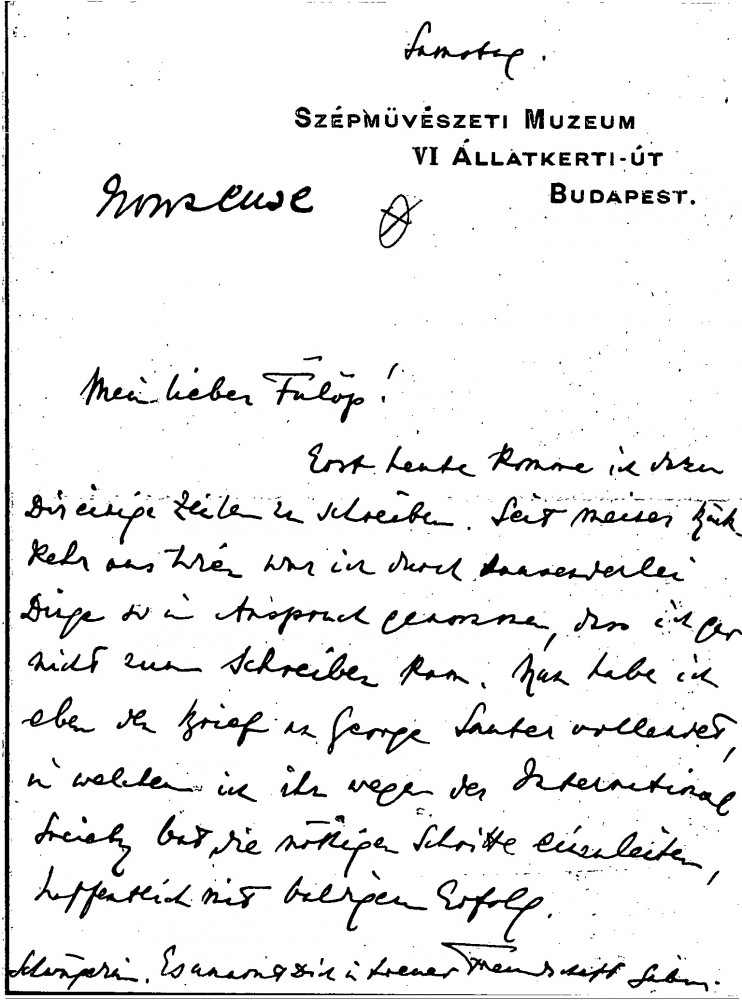 Samstag.
SZÉPMÜVÉSZETI MUZEUM
VI ÁLLATKERTI-ÚT
BUDAPEST.
Mein lieber Fülöp!
Erst heute komme ich dazu
Dir einige Zeilen zu schreiben. Seit meiner Rück-
kehr aus Wien war ich durch tausenderlei
Dinge so in Anspruch genommen, dass ich gar
nicht zum Schreiben kam. Nun habe ich
eben den Brief an George Sauter vollendet,
in welchem ich ihn wegen der International
Society bat, die nöthigen Schritte einzuleiten,
hoffentlich mit baldigem Erfolg.
Schwägerin. Es umarmt Dich in treuer Freundschaft